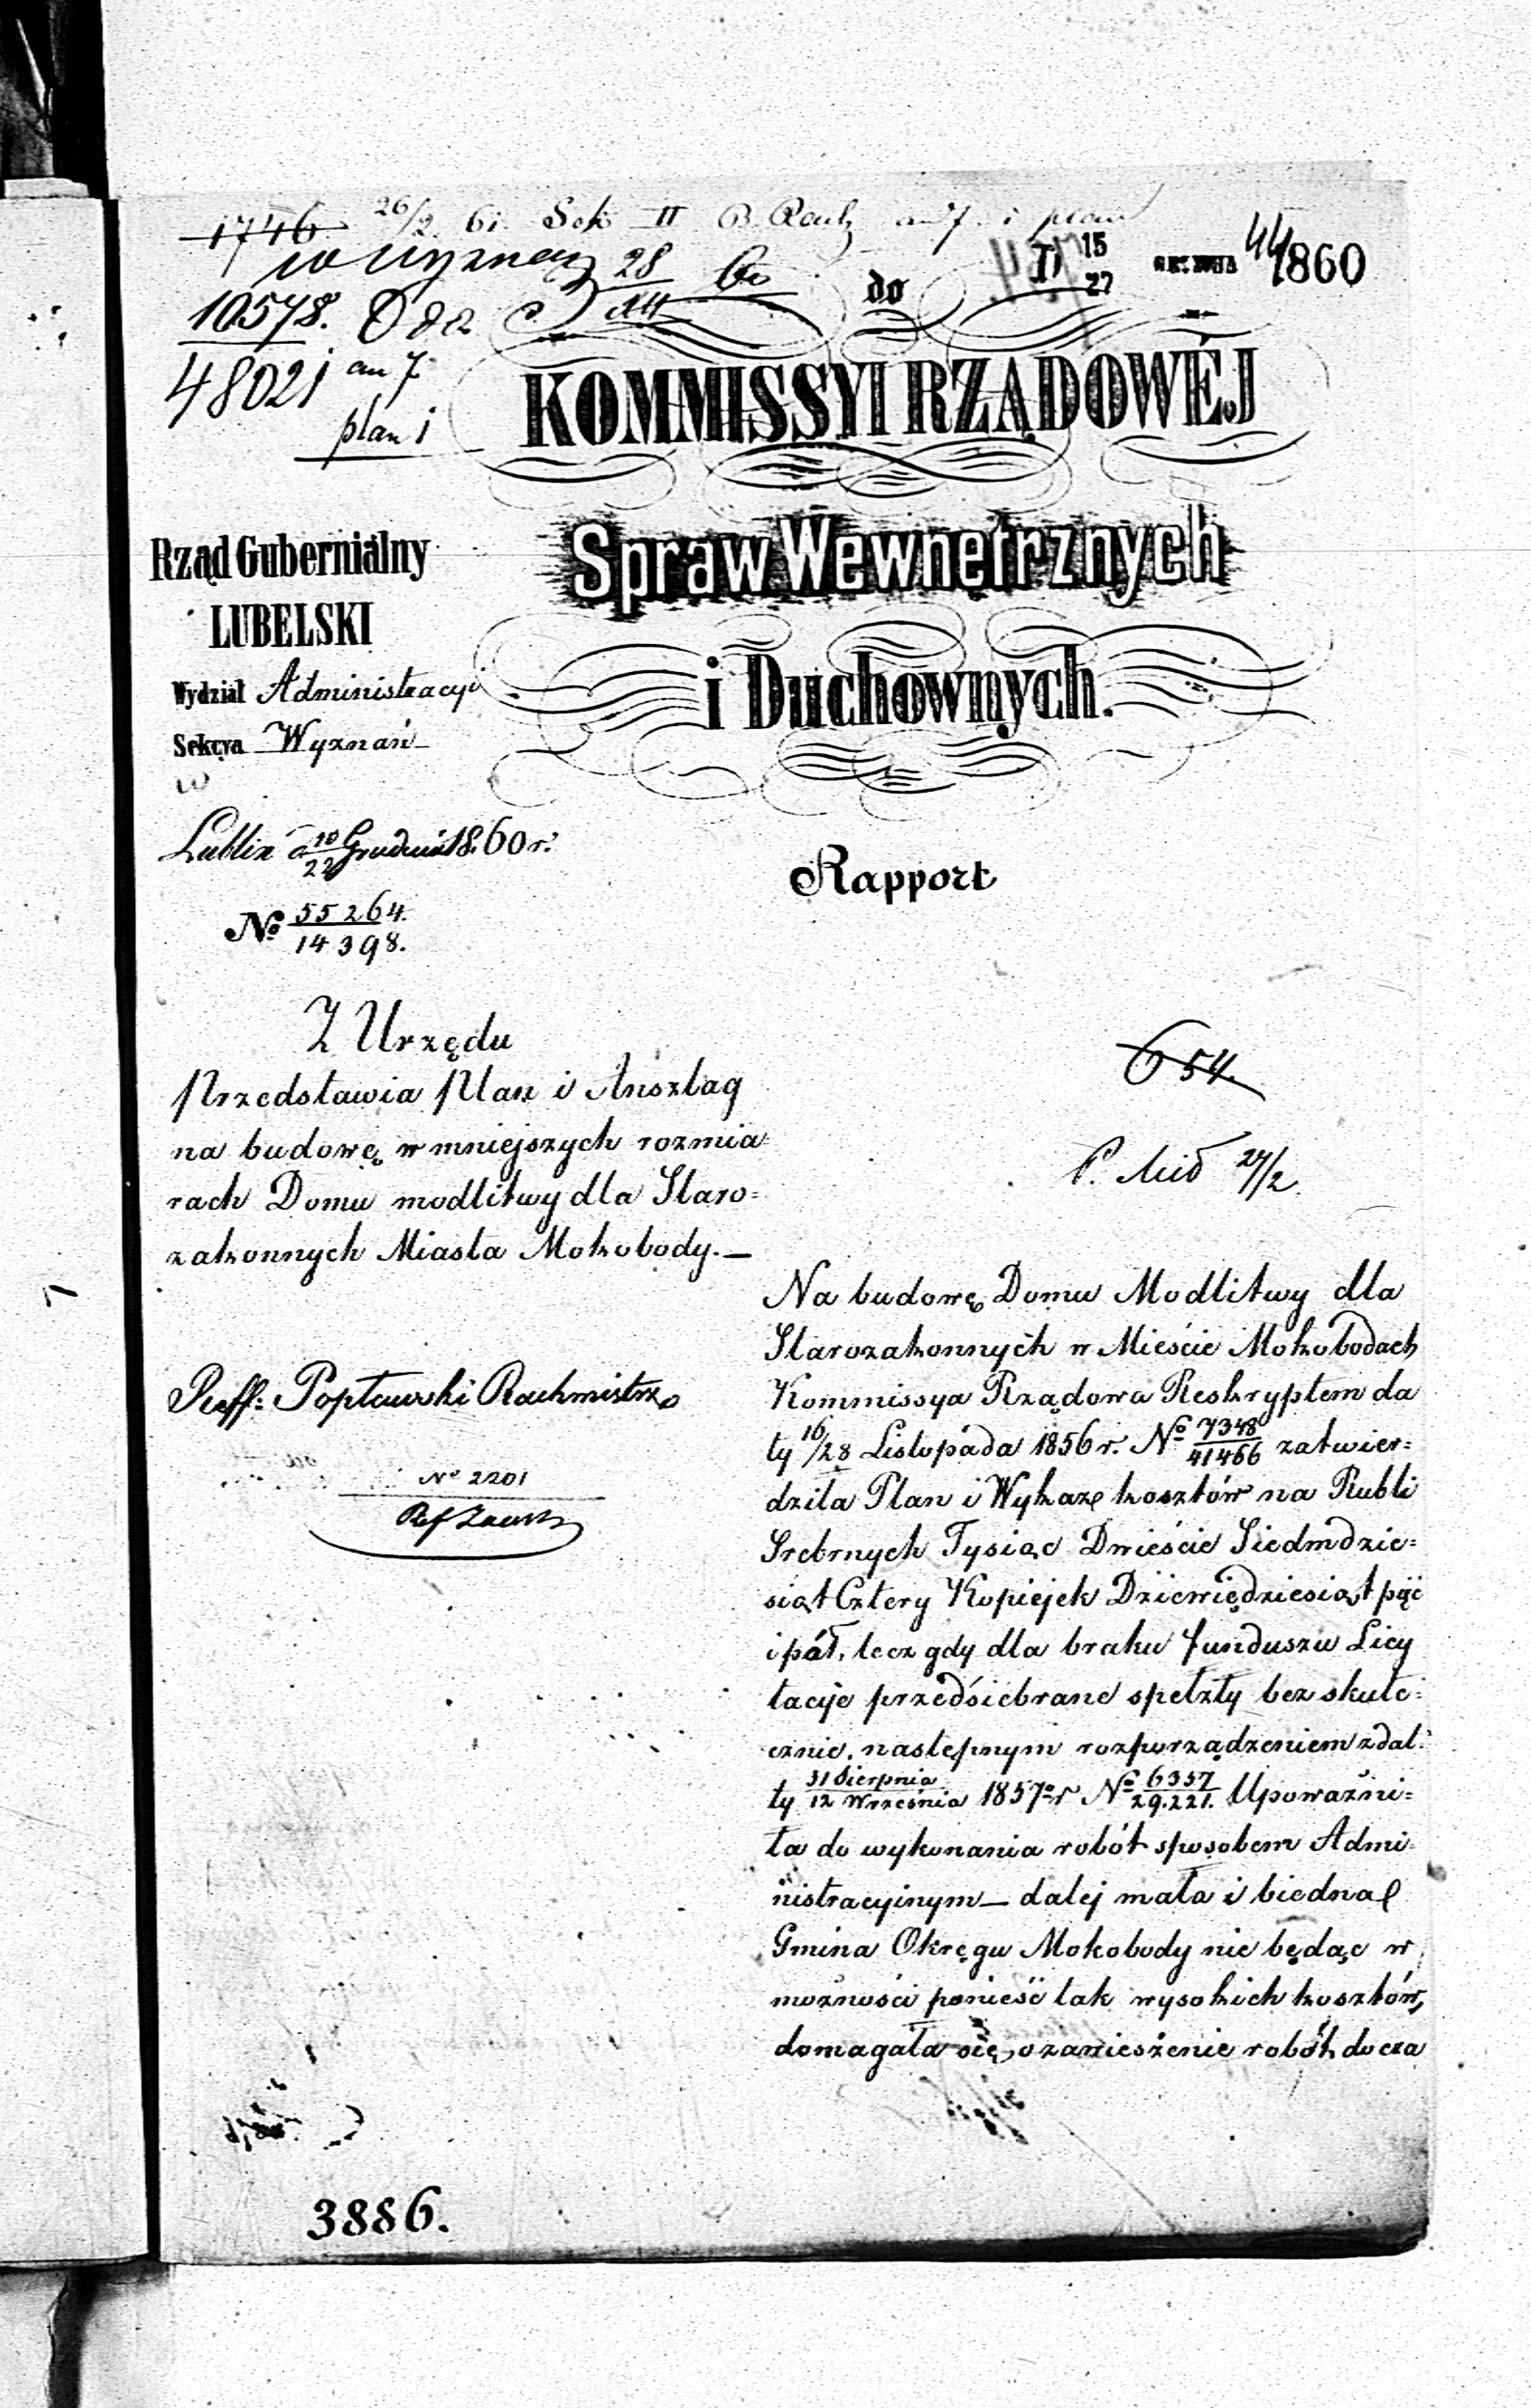 1746 26/2 61 Sek II
w wyznaz 28/XII 60
10578.
48021 an 7
plan i
do
15
27
44
1860
KOMMISSYI RZĄDOWÉJ
Spraw Wewnętrznych
i Duchownych.
Rząd Gubernialny
LUBELSKI
Wydział Administracyi
Sekcya Wyznań
Lublin d 10/22 Grudnia 1860 r.
No 55264./14398.
Rapport
Z Urzędu
Przedstawia Plan i Anszlag
na budowę w mniejszych rozmia-
rach Domu modlitwy dla Staro-
zakonnych Miasta Mokobody.—
654.
27/2.
Reff: Popławski Rachmistrz
No 2201
Na budowę Domu Modlitwy dla
Starozakonnych w Mieście Mokobodach
Kommissya Rządowa Reskryptem da
ty 16/28 Listopada 1856 r. No 7348/41466 zatwier-
dziła Plan i Wykaz kosztów na Rubli
Srebrnych Tysiąc Dwieście Siedmdzie-
siąt Cztery Kopiejek Dziewiędziesiąt pięć
i pół, lecz gdy dla braku funduszu Licy
tacye przedsiebrane spełzły bez skute-
cznie, następnym rozporządzeniem z dat
ty 31 Sierpnia/12 Września 1857 r No 6357/29.221. Upoważni-
ła do wykonania robót sposobem Admi-
nistracyinym— dalej mała i biedna
Gmina Okręgu Mokobody nie będąc w
możności ponieść tak wysokich kosztów,
domagała się, o zaniesienie robót do cza
3886.